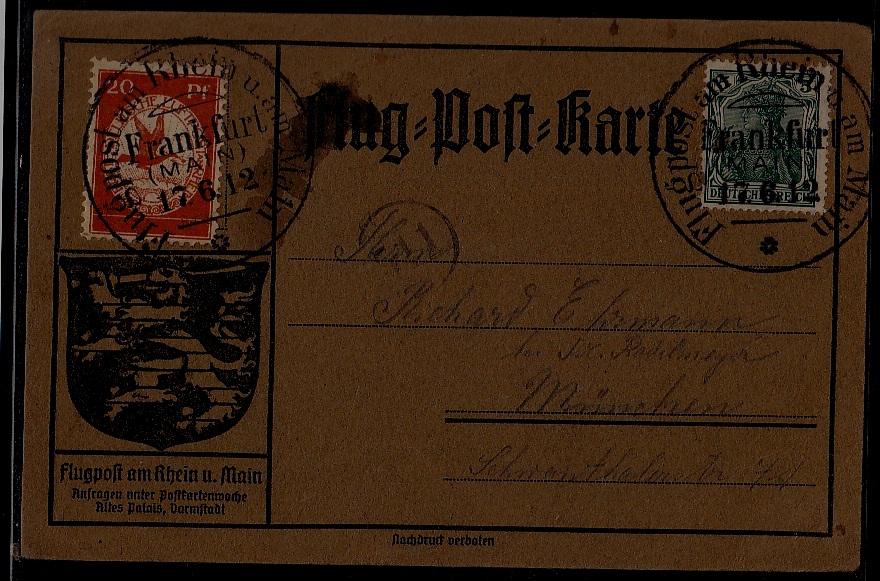 20 Pf
Flugpost am Rhein u. am Main
Frankfurt
(MAIN)
17.6.12.
Flug-Post-Karte
Flugpost am Rhein u. am Main
Frankfurt
(MAIN)
17.6.12
DEUTSCHES REICH
Herrn
Richard Ehrmann
bei
München
Flugpost am Rhein u. Main
Anfragen unter Postkartenwoche
Altes Palais, Darmstadt
Nachdruck verboten